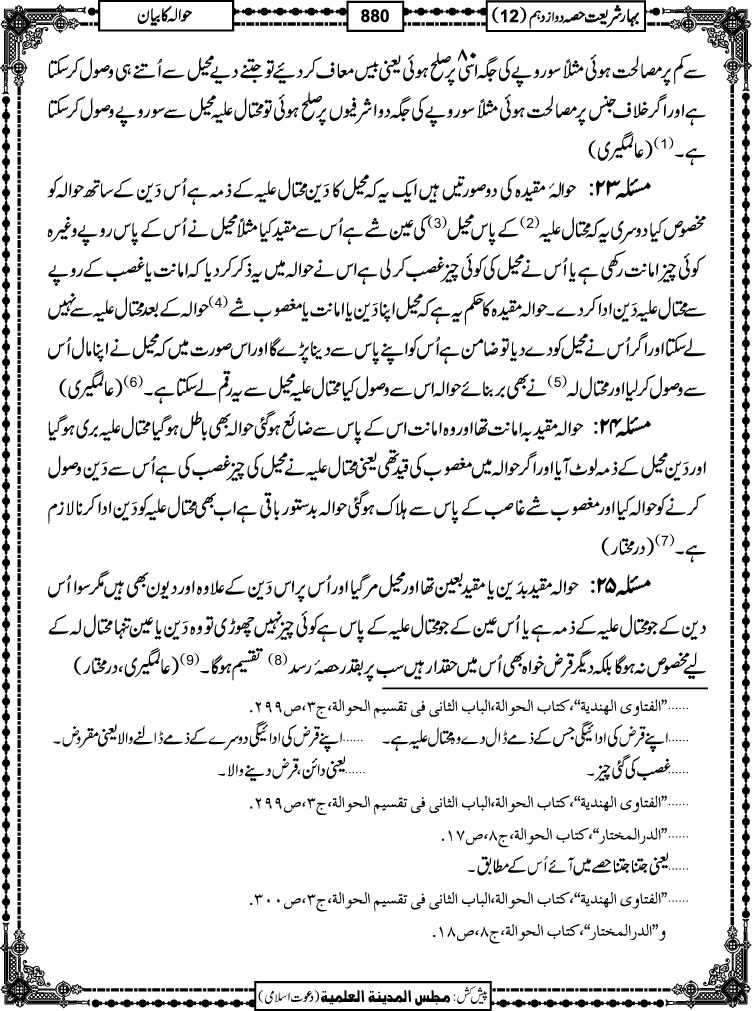 بہارِ شریعت حصہ دوازدہم (12)
880
حوالہ کا بیان
سے کم پر مصالحت ہوئی مثلاً سو روپے کی جگہ اسّی ۸۰ پر صلح ہوئی یعنی بیس معاف کر دئیے تو جتنے دیے محیل سے اُتنے ہی وصول کر سکتا
ہے اور اگر خلاف جنس پر مصالحت ہوئی مثلاً سو روپے کی جگہ دو اشرفیوں پر صلح ہوئی تو محتال علیہ محیل سے سو روپے وصول کر سکتا
ہے۔ (1) (عالمگیری)
مسئلہ ۲۳: حوالۂ مقیدہ کی دو صورتیں ہیں ایک یہ کہ محیل کا دَین محتال علیہ کے ذمہ ہے اُس دَین کے ساتھ حوالہ کو
مخصوص کیا دوسری یہ کہ محتال علیہ (2) کے پاس محیل (3) کی عین شے ہے اُس سے مقید کیا مثلاً محیل نے اُس کے پاس روپے وغیرہ
کوئی چیز امانت رکھی ہے یا اُس نے محیل کی کوئی چیز غصب کر لی ہے اس نے حوالہ میں یہ ذکر کر دیا کہ امانت یا غصب کے روپے
سے محتال علیہ دَین ادا کر دے۔ حوالہ مقیدہ کا حکم یہ ہے کہ محیل اپنا دَین یا امانت یا مغصوب شے (4) حوالہ کے بعد محتال علیہ سے نہیں
لے سکتا اور اگر اُس نے محیل کو دے دیا تو ضامن ہے اُس کو اپنے پاس سے دینا پڑے گا اور اس صورت میں کہ محیل نے اپنا مال اُس
سے وصول کر لیا اور محتال لہ (5) نے بھی بر بنائے حوالہ اس سے وصول کیا محتال علیہ محیل سے یہ رقم لے سکتا ہے۔ (6) (عالمگیری)
مسئلہ ۲۴: حوالہ مقید بہ امانت تھا اور وہ امانت اس کے پاس سے ضائع ہوگئی حوالہ بھی باطل ہوگیا محتال علیہ بری ہوگیا
اور دَین محیل کے ذمہ لوٹ آیا اور اگر حوالہ میں مغصوب کی قید تھی یعنی محتال علیہ نے محیل کی چیز غصب کی ہے اُس سے دَین وصول
کرنے کو حوالہ کیا اور مغصوب شے غاصب کے پاس سے ہلاک ہوگئی حوالہ بدستور باقی ہے اب بھی محتال علیہ کو دَین ادا کرنا لازم
ہے۔ (7) (درمختار)
مسئلہ ۲۵: حوالہ مقید بدَین یا مقید بعین تھا اور محیل مر گیا اور اُس پر اس دَین کے علاوہ اور دیون بھی ہیں مگر سوا اُس
دین کے جو محتال علیہ کے ذمہ ہے یا اُس عین کے جو محتال علیہ کے پاس ہے کوئی چیز نہیں چھوڑی تو وہ دَین یا عین تنہا محتال لہ کے
لیے مخصوص نہ ہوگا بلکہ دیگر قرض خواہ بھی اُس میں حقدار ہیں سب پر بقدر حصۂ رسد (8) تقسیم ہوگا۔ (9) (عالمگیری، درمختار)
......”الفتاوی الھندیة“،کتاب الحوالة،الباب الثانی فی تقسیم الحوالة،ج۳،ص۲۹۹.
......اپنے قرض کی ادائیگی جس کے ذمے ڈال دے وہ محتال علیہ ہے۔ ......اپنے قرض کی ادائیگی دوسرے کے ذمے ڈالنے والا یعنی مقروض۔
......غصب کی گئی چیز۔ ......یعنی دائن، قرض دینے والا۔
......”الفتاوی الھندیة“،کتاب الحوالة،الباب الثانی فی تقسیم الحوالة،ج۳،ص۲۹۹.
......”الدرالمختار“،کتاب الحوالة،ج۸،ص۱۷.
......یعنی جتنا جتنا حصے میں آئے اُس کے مطابق۔
......”الفتاوی الھندیة“،کتاب الحوالة،الباب الثانی فی تقسیم الحوالة،ج۳،ص۳۰۰.
و”الدرالمختار“،کتاب الحوالة،ج۸،ص۱۸.
پیش کش: مجلس المدینة العلمیة (دعوتِ اسلامی)